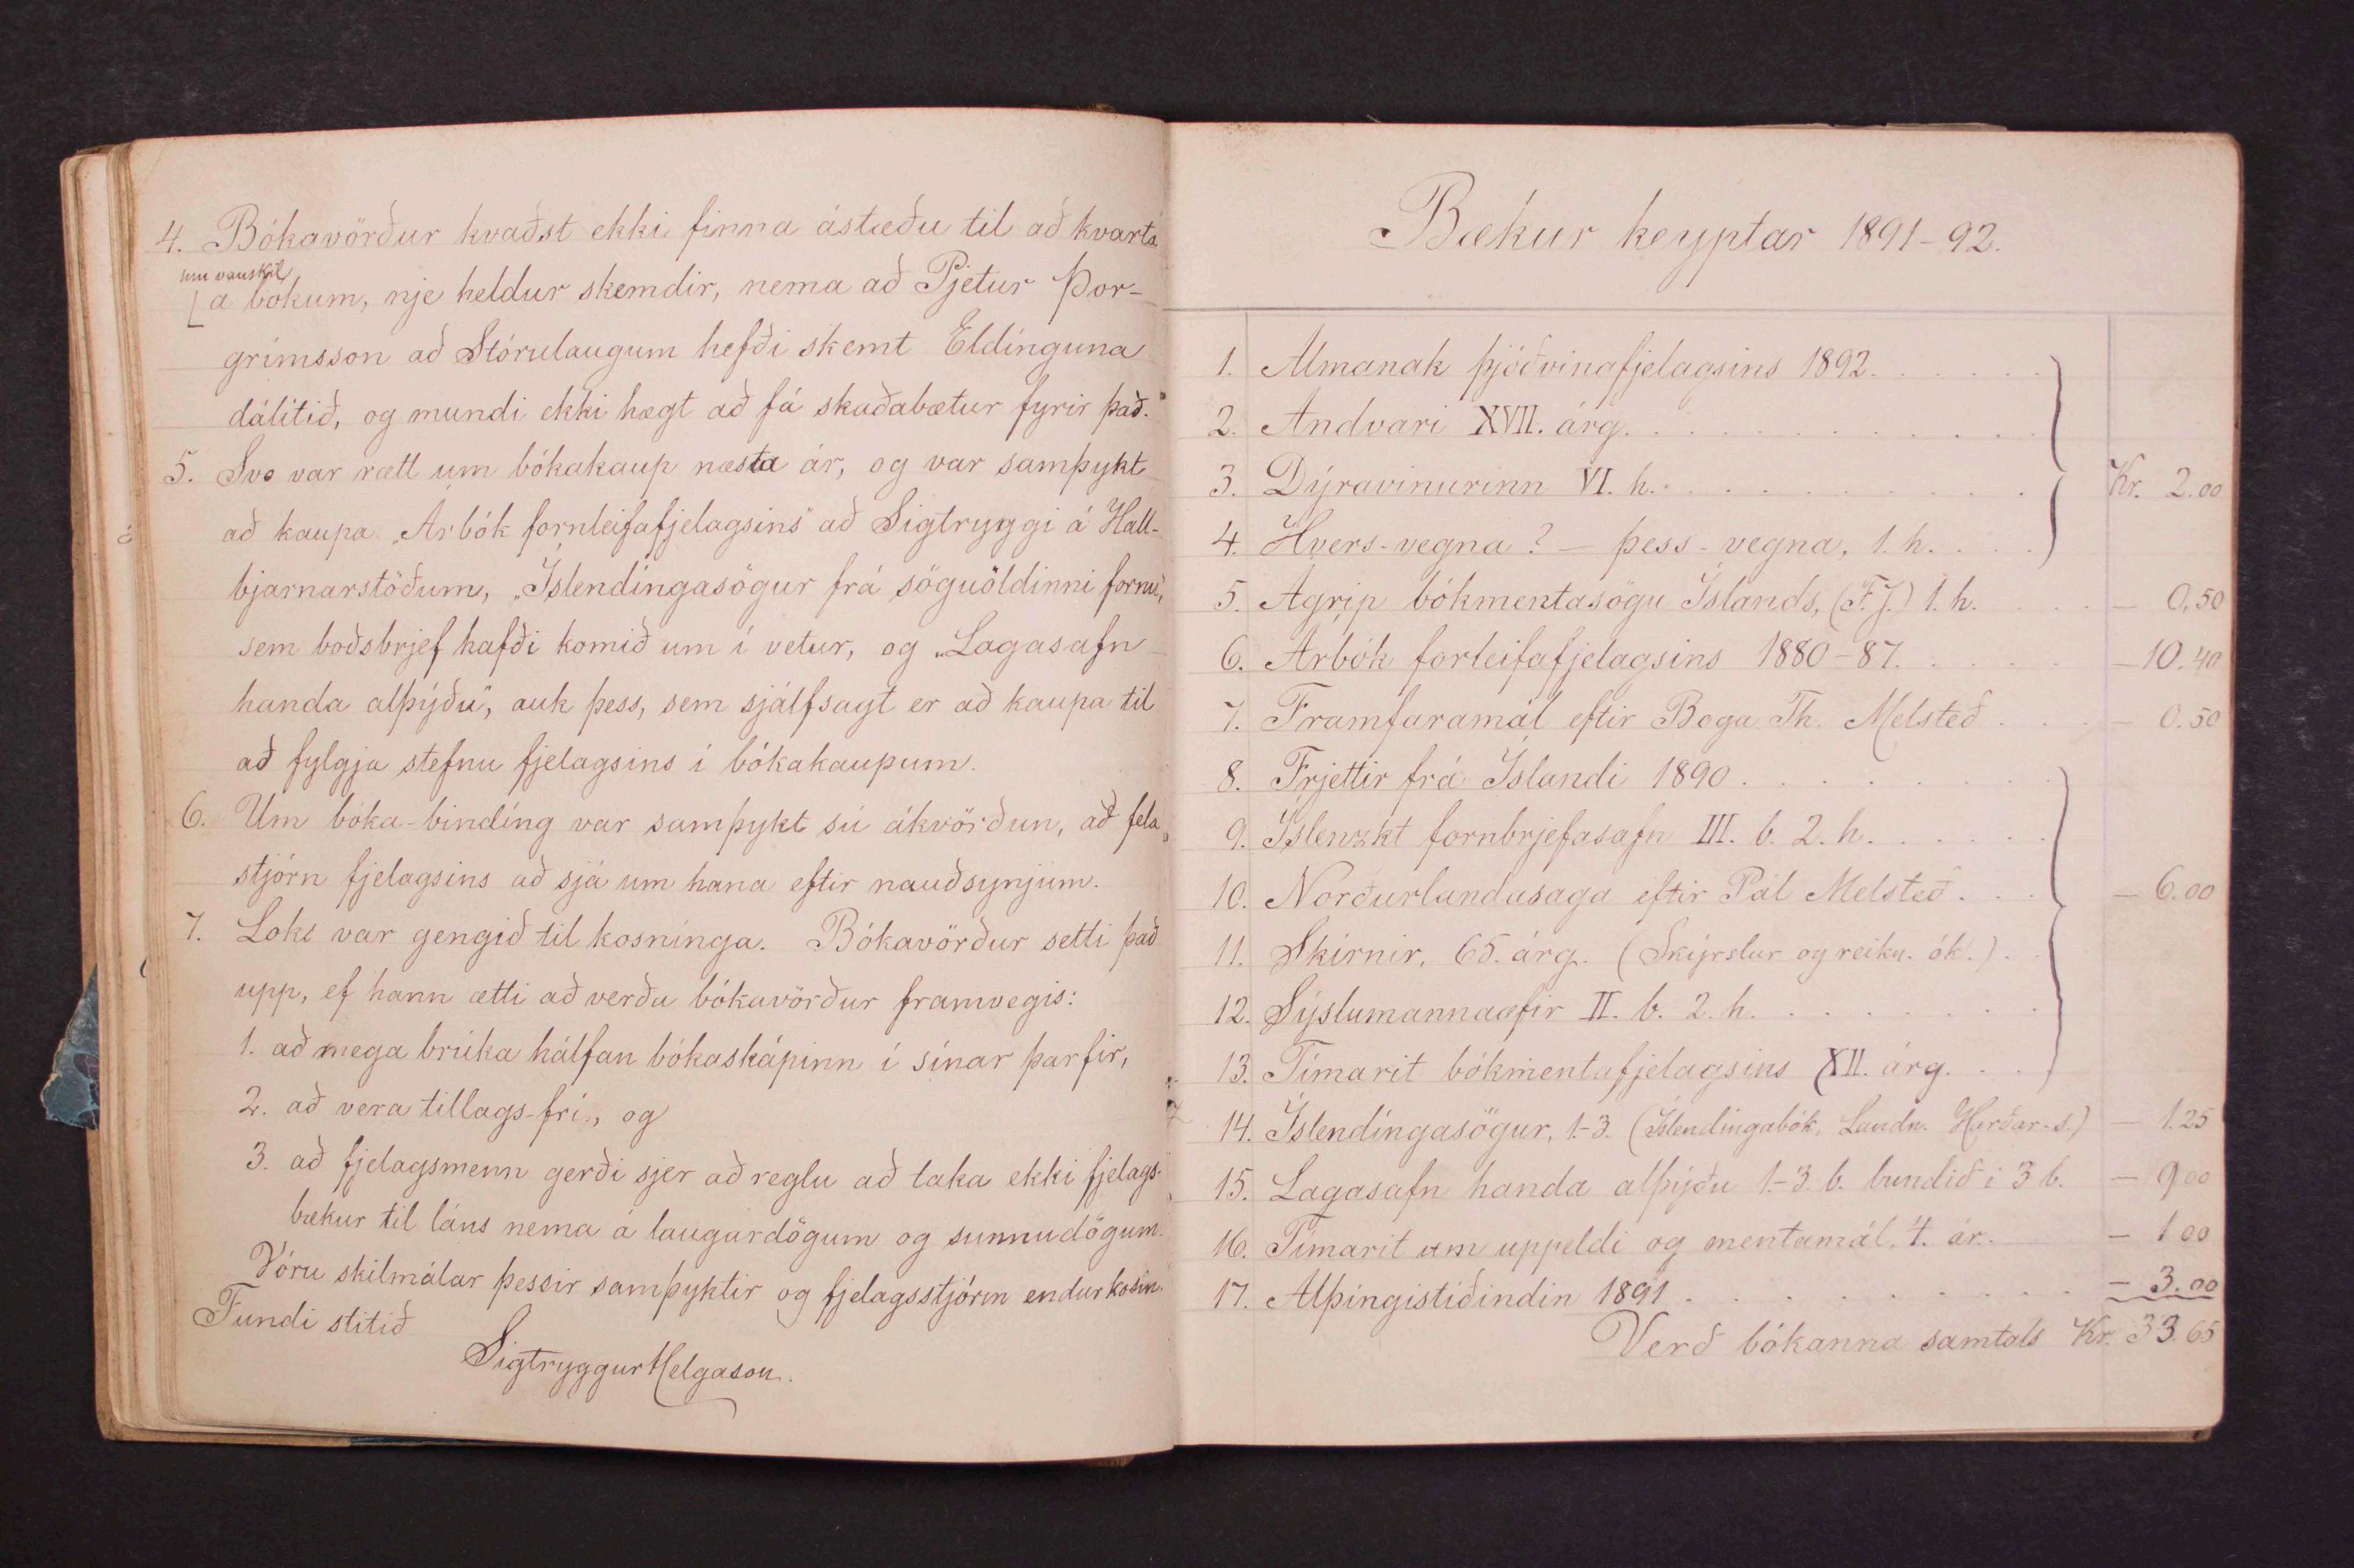 4. Bókavörður kvaðst ekki finna ástæðu til að kvarta
um vanskil
[á bókum, nje heldur skemdir, nema að Pjetur Þor-
grímsson að Stórulaugum hefði skemt Eldínguna
dálítið, og mundi ekki hægt að fá skaðabætur fyrir það.
5. Svo var rætt um bókakaup næsta ár, og var samþykt
að kaupa „Árbók fornleifafjelagsins" að Sigtryggi á Hall-
bjarnarstöðum, „Íslendíngasögur frá söguöldinni fornu",
sem boðsbrjef hafði komið um í vetur, og „Lagasafn
handa alþýðu", auk þess, sem sjálfsagt er að kaupa til
að fylgja stefnu fjelagsins í bókakaupum.
6. Um bóka-bindíng var samþykt sú ákvörðun, að fela
stjórn fjelagsins að sjá um hana eftir nauðsynjum.
7. Loks var gengið til kosnínga. Bókavörður setti það
upp, ef hann ætti að verða bókavörður framvegis:
1. að mega brúka hálfan bókaskápinn í sínar þarfir,
2. að vera tillags-frí., og
3. að fjelagsmenn gerði sjer að reglu að taka ekki fjelags-
bækur til láns nema á laugardögum og sunnudögum.
Vóru skilmálar þessir samþyktir og fjelagsstjórin endurkosin.
Fundi slitið
Sigtryggur Helgason.
Bækur keyptar 1891-92.
1. Almanak þjóðvinafjelagsins 1892. . . . . . .
2. Andvari XVII. árg. . . . . . . . . . . .
3. Dýravinurinn VI. h. . . . . . . . . . . Kr. 2.00
4. Hvers-vegna? — þess-vegna, 1. h. . . . .
5. Ágrip bókmentasögu Íslands, (F.J.) 1. h. . . . — 0,50
6. Árbók forleifafjelagsins 1880-87. . . . . . — 10.40
7. Framfaramál eftir Boga Th. Melsteð . . . — 0.50
8. Frjettir frá Íslandi 1890 . . . . . . . .
9. Íslenzkt fornbrjefasafn III. b. 2. h. . . . . .
10. Norðurlandasaga eftir Pál Melsteð . . . — 6.00
11. Skírnir, 65. árg. (Skýrslur og reikn. ók.) . .
12. Sýslumannaæfir II. b. 2. h. . . . . . . . .
13. Tímarit bókmentafjelagsins XII. árg. . . .
14. Íslendíngasögur, 1.-3. (Íslendíngabók, Landn. Harðar-s.) — 1.25
15. Lagasafn handa alþýðu 1.-3. b. bundið í 3 b. — 9 00
16. Tímarit um uppeldi og mentamál. 4. ár. — 1 00
17. Alþingistíðindin 1891 . . . . . . . . . . — 3.00
Verð bókanna samtals Kr. 33.65